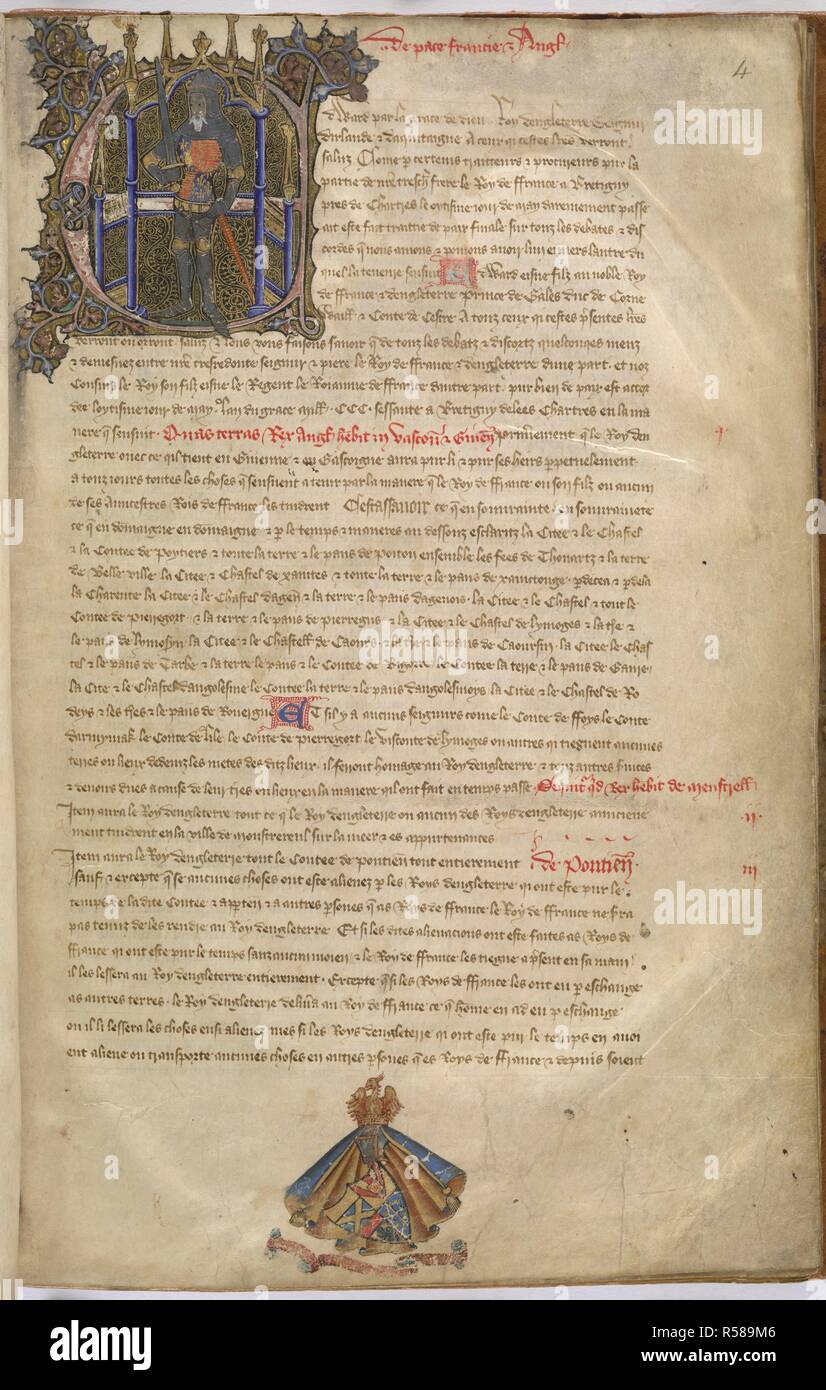 De pace francie & Angl
4
dWard par la grace de dieu Roy dengleterre Seignur
dirlande & daquitaigne A ceux qi cestes lres verront
saluz Come p certeins traiteurs & procureurs pur la
partie de nre tresch frere le Roy de ffrance a Bretigny
pres de Chartres le oytisme iour de May darreinement passe
ait este fait traitie de pax finale sur touz les debates & dis
cordes q nous avions & poiions avoir lun envers lautre du
quel la tenure sensuit EdWard eisne filz au noble Roy
de ffrance & dengleterre Prince de Gales duc de Corne
Waill & Conte de Cestre A touz ceux qi cestes psentes lres
verront ou orront saluz & Nous vous faisons savoir q de touz les debatz & discortz quelconqes meuz
& demesnez entre nre tresredoute seignur & piere le Roy de ffrance & dengleterre dune part et noz
Cousins le Roy son filz eisne le Regent le Roiaume de ffrance dautre part pur bien de pax est accor
dee loytisme iour de May lan du grace mill CCC sessante a Bretigny delees Chartres en la ma
nere q sensuit Quas terras Rex Angl hebit in Vascon & Guien Primerment q le Roy den
gleterre ovec ce qil tient en Guienne & en Gascoigne aura pur li & pur ses heirs ppetuelement
a touz iours toutes les choses q sensuient a tenir par la manere q le Roy de ffrance ou son filz ou aucun
de ses Auncestres Rois de ffrance les tindrent Cestassavoir ce q en sovrainete en sovrainete
ce q en domaigne en domaigne & p le temps & maneres au dessouz esclaritz la Citee & le Chastel
& la Contee de Poytiers & toute la terre & le pais de poitou ensemble les fees de Thouartz & la terre
de Belle ville la Citee & Chastel de xanctes & toute la terre & le pais de xanctonge pdeca & pdela
la Charente la Citee & le Chastel dagen & la terre & le pais dagenois la Citee & le Chastel & tout le
Contee de pierregort & la terre & le pais de pierregus & la Citee & le Chastel de lymoges & la tre &
le pais de lymosyn la Citee & le Chastell de Caours & la tre & le pais de Caoursin la Citee le Chas
tel & le pais de Tarbe & la terre le pais & le Contee de Bigorre le Contee la terre & le pais de Gaure
la Cite & le Chastel dangolesme le Contee la terre & le pais dangolesmoys la Citee & le Chastel de Ro
deys & les tres & le pais de Rouergne ET sil y a aucuns seignurs come le Conte de ffoys le Conte
darmynak le Conte de lile le Conte de pierregort le Visconte de lymoges ou autres qi tiegnent aucunes
terres ou lieux dedeinz les metes des ditz lieux il ferront homage au Roy dengleterre & touz autres svices
& devoirs dues a cause de leur tres ou lieux en la manere qil ont fait en temps passe Sequit qd Rex hebit de Menstrell
Item aura le Roy dengleterre tout ce q le Roy dengleterre ou aucun des Roys dengleterre auncienement
ii
ment tindrent en la ville de Monstreruil sur la meer & es appurtenances
Item aura le Roy dengleterre tout le Contee de pontieu tout entierement de Pontieu
iii
sauf & excepte q se aucunes choses ont este alienez p les Roys dengleterre qi ont este pur le
temps de la dite Contee & apparten & a autres psones q as Roys de ffrance le Roy de ffrance ne fra
pas tenuz de les rendre au Roy dengleterre Et si les dites alienacions ont este faites as Roys de
ffrance qi ont este pur le temps sanz aucun moien & le Roy de ffrance les tiegne a psent en sa main
il les lessera au Roy dengleterre entierement Excepte q si les Roys de ffrance les ont eu p eschange
as autres terres le Roy dengleterre delivra au Roy de ffrance ce q home en ad eu p eschange
ou il li lessera les choses ensi alienez mes si les Roys dengleterre qi ont este pur le temps en avoi
ent aliene ou transporte aucunes choses en autres psones q es Roys de ffrance & depuis soient
alamy
Image ID: R589M6
www.alamy.com